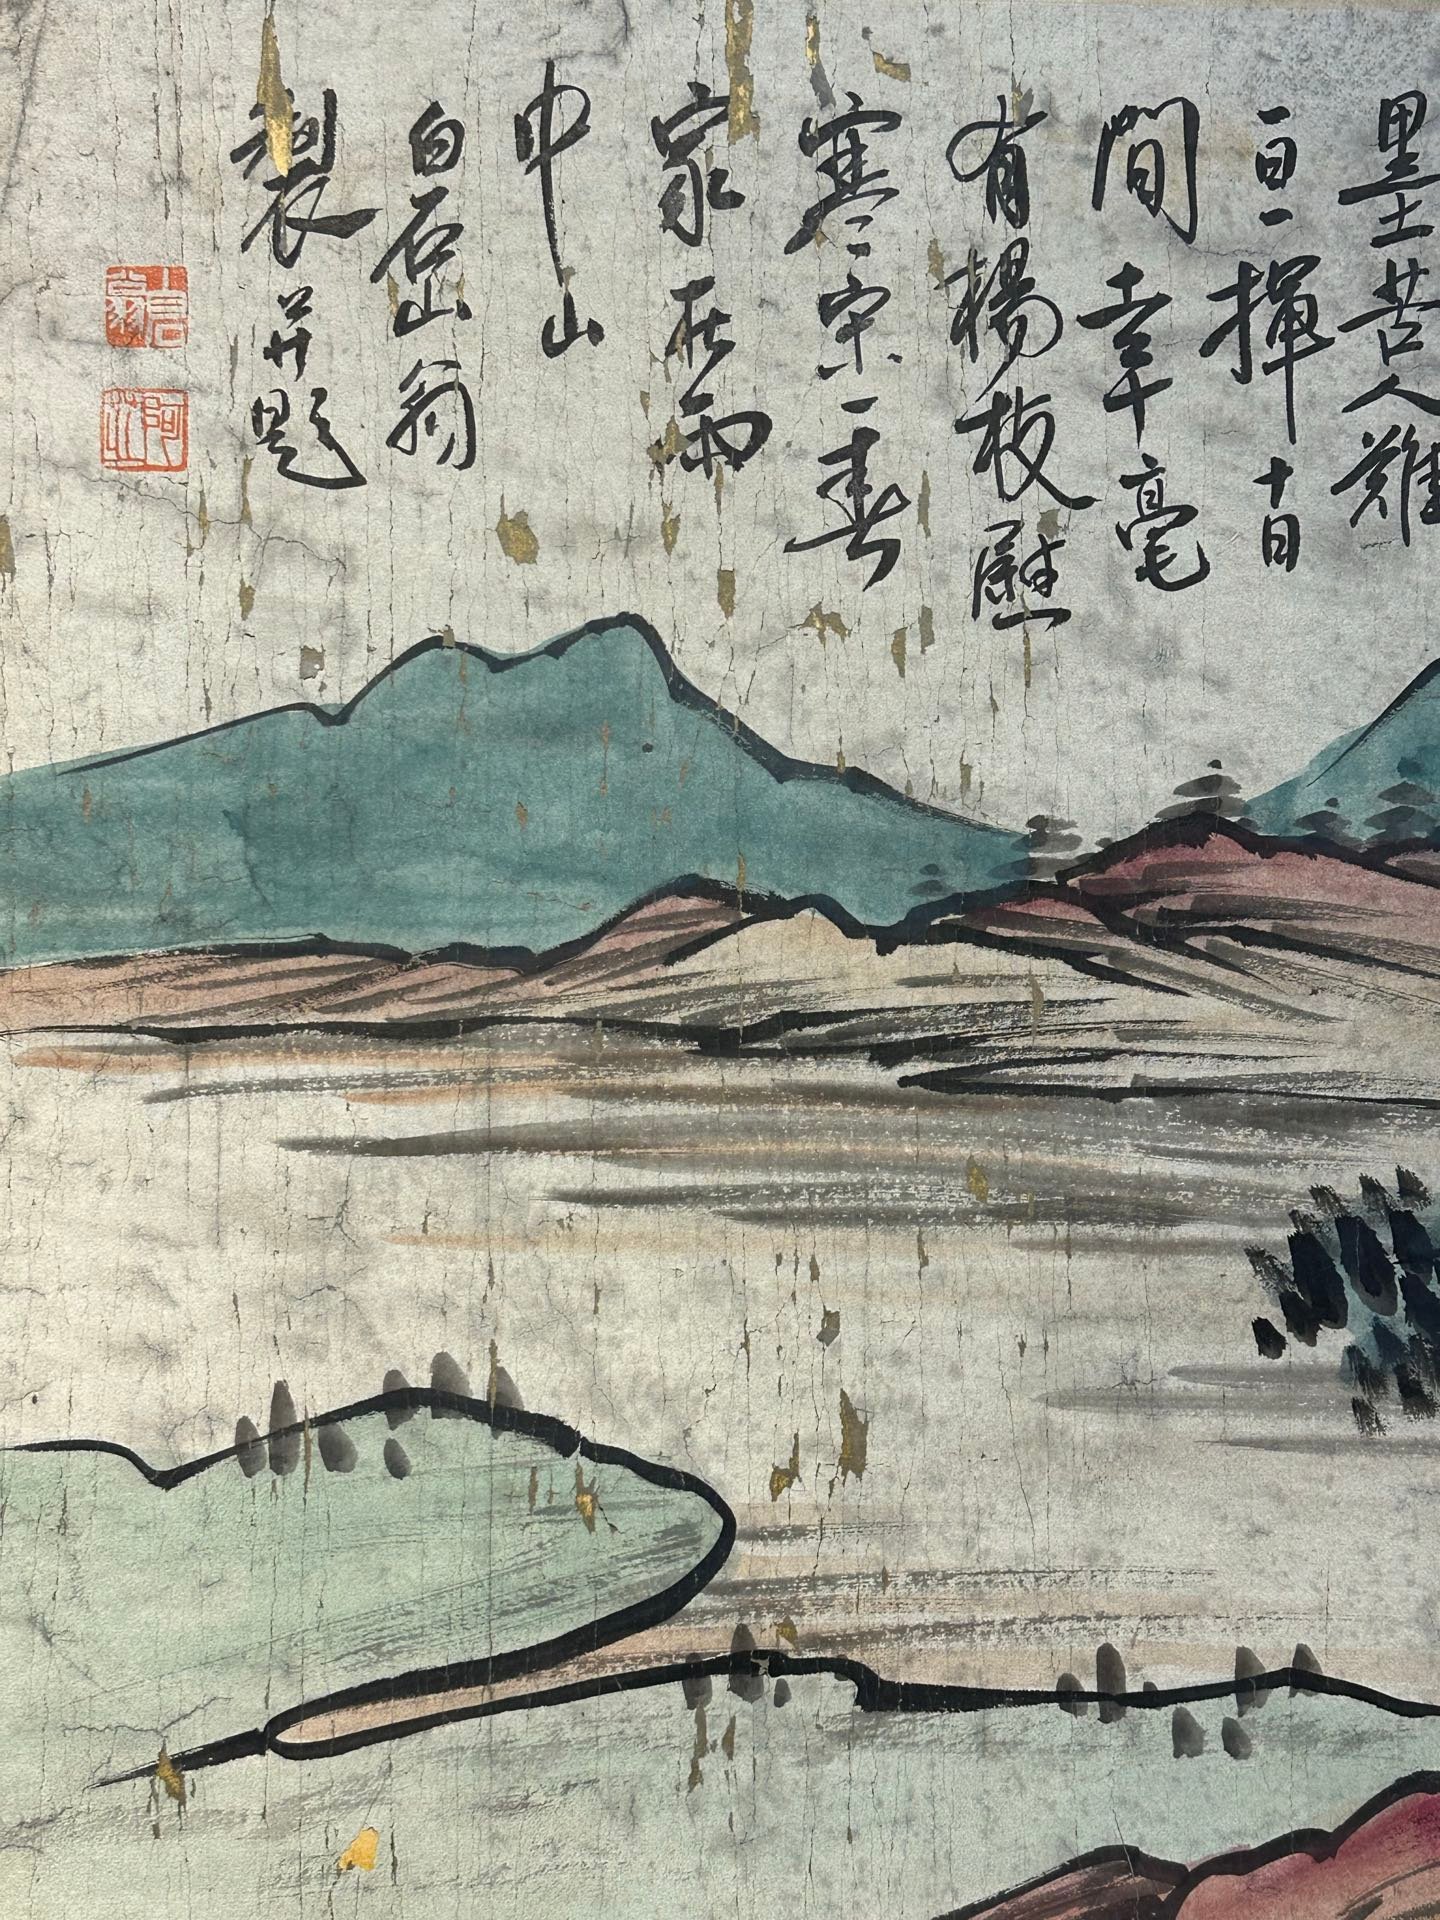 墨苦人難
百一揮十日
間幸毫
有楊枝慰
寒宗一春
家在雨
中山
白石山翁
製并題
阿芝